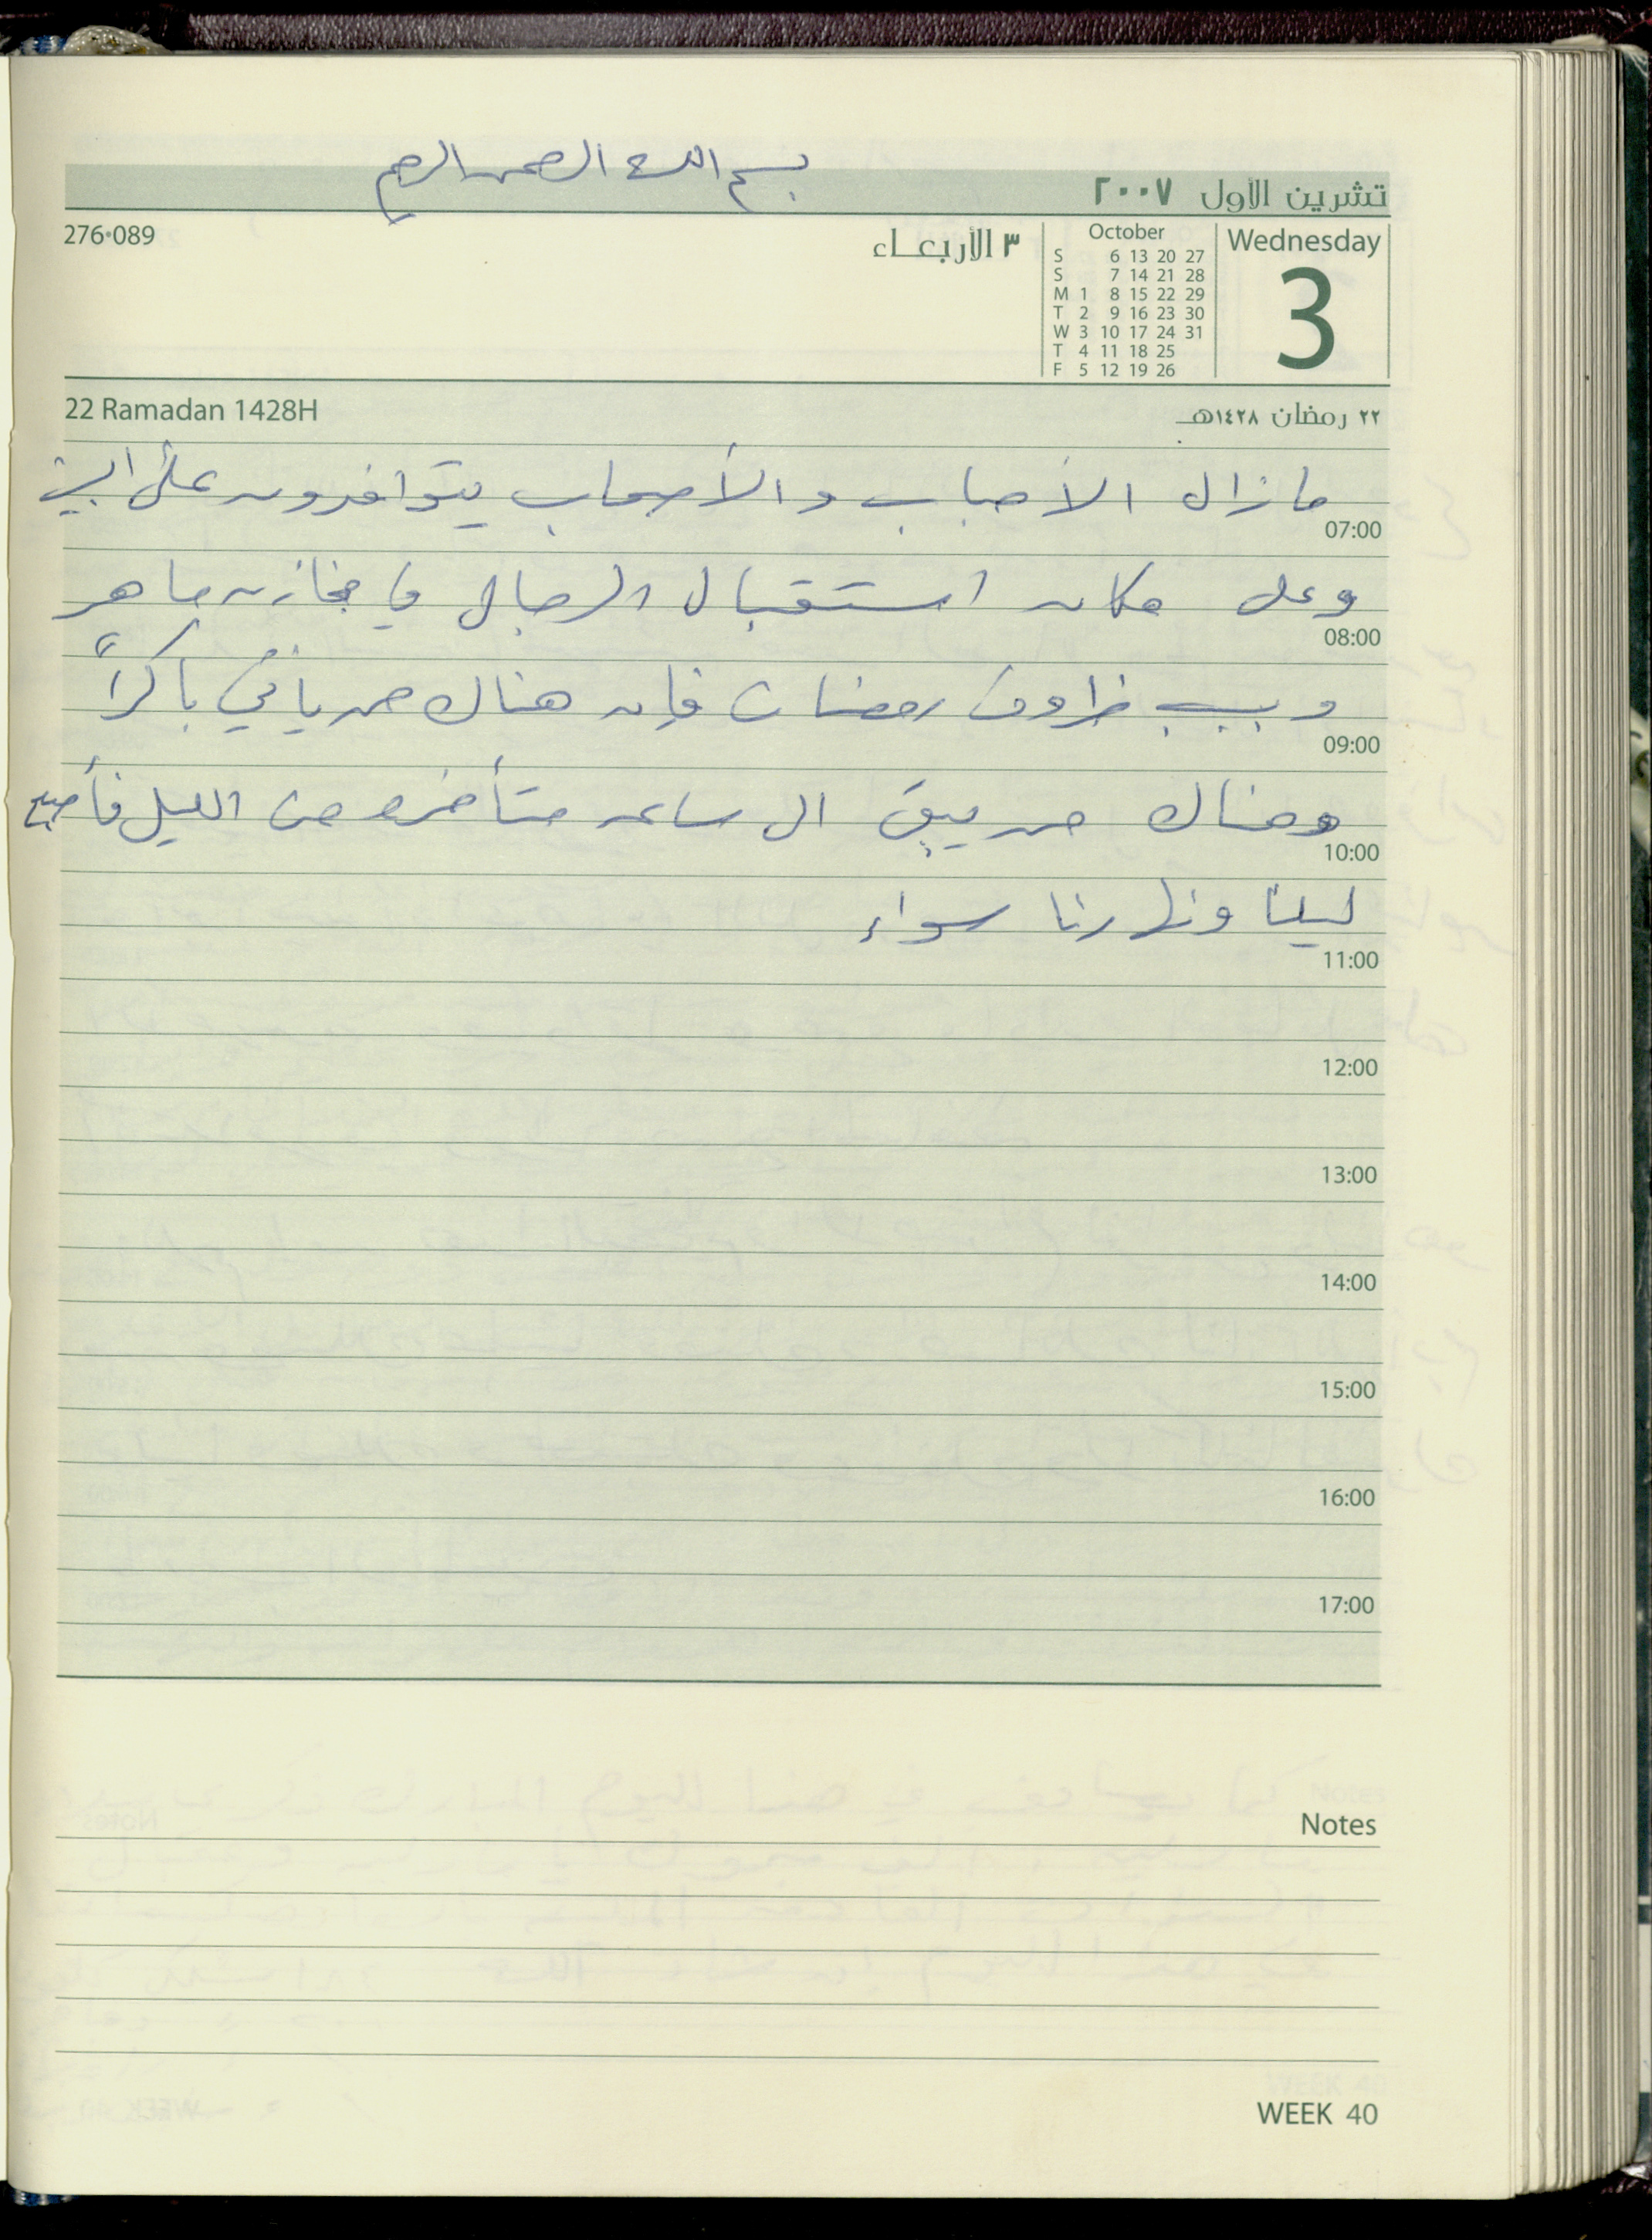 بسم الله الرحمن الرحيم
تشرين الأول ٢٠٠٧
276•089
٣ الأربعـاء
October
Wednesday
S 6 13 20 27
S 7 14 21 28
M 1 8 15 22 29
T 2 9 16 23 30
W 3 10 17 24 31
T 4 11 18 25
F 5 12 19 26
3
22 Ramadan 1428H
٢٢ رمضان ١٤٢٨هـ
مازال الأحباب والأصحاب يتوافدون على البيت
07:00
وعلى مكان استقبال الرجال في مخازن ماهر
08:00
وبسبب ظروف رمضان فإن هناك من يأتي باكراً
09:00
وهناك من يبقى الى ساعة متأخرة من الليل فأصبح
10:00
ليلنا ونهارنا سواء
11:00
12:00
13:00
14:00
15:00
16:00
17:00
Notes
WEEK 40